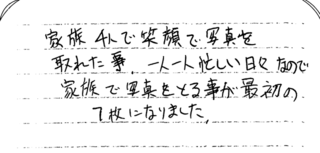 家族4人で笑顔で写真を
取れた事、一人一人忙しい日々なので
家族で写真をとる事が最初の
1枚になりました。